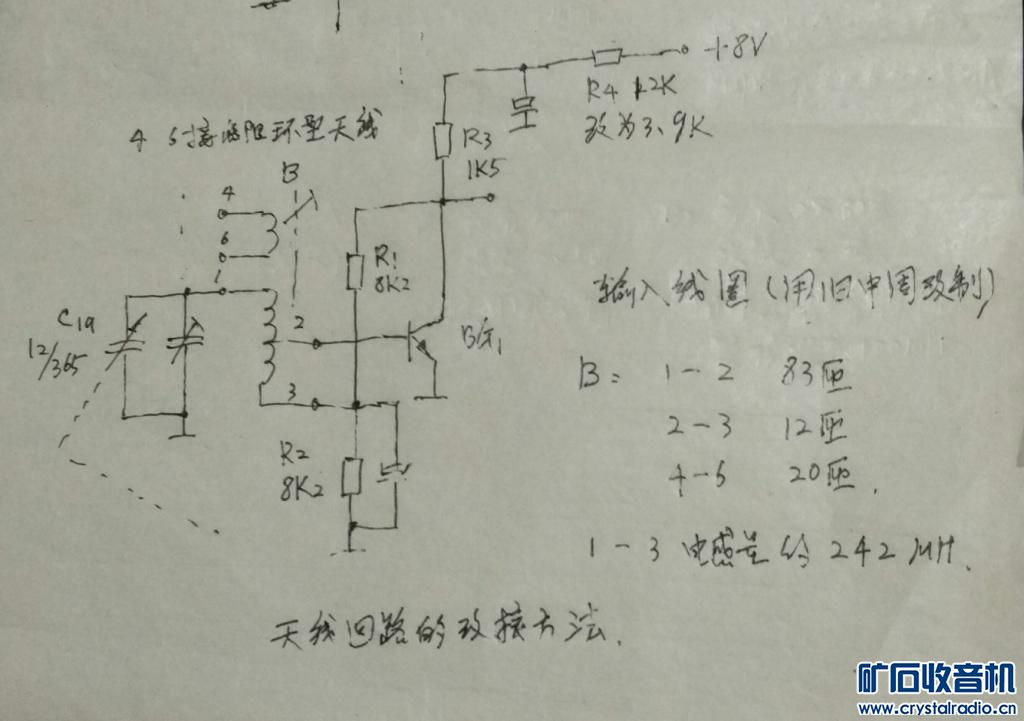 +8V
R4 12K
改为3.9K
4 5接低阻环型天线
R3
1K5
B
4
6
1
R1
8K2
C1a
12/365
2
BG1
3
R2
8K2
输入线圈(用旧中周改制)
B: 1-2 83匝
2-3 12匝
4-5 20匝.
1-3 电感量约242μH.
天线回路的改接方法.
矿石收音机
www.crystalradio.cn